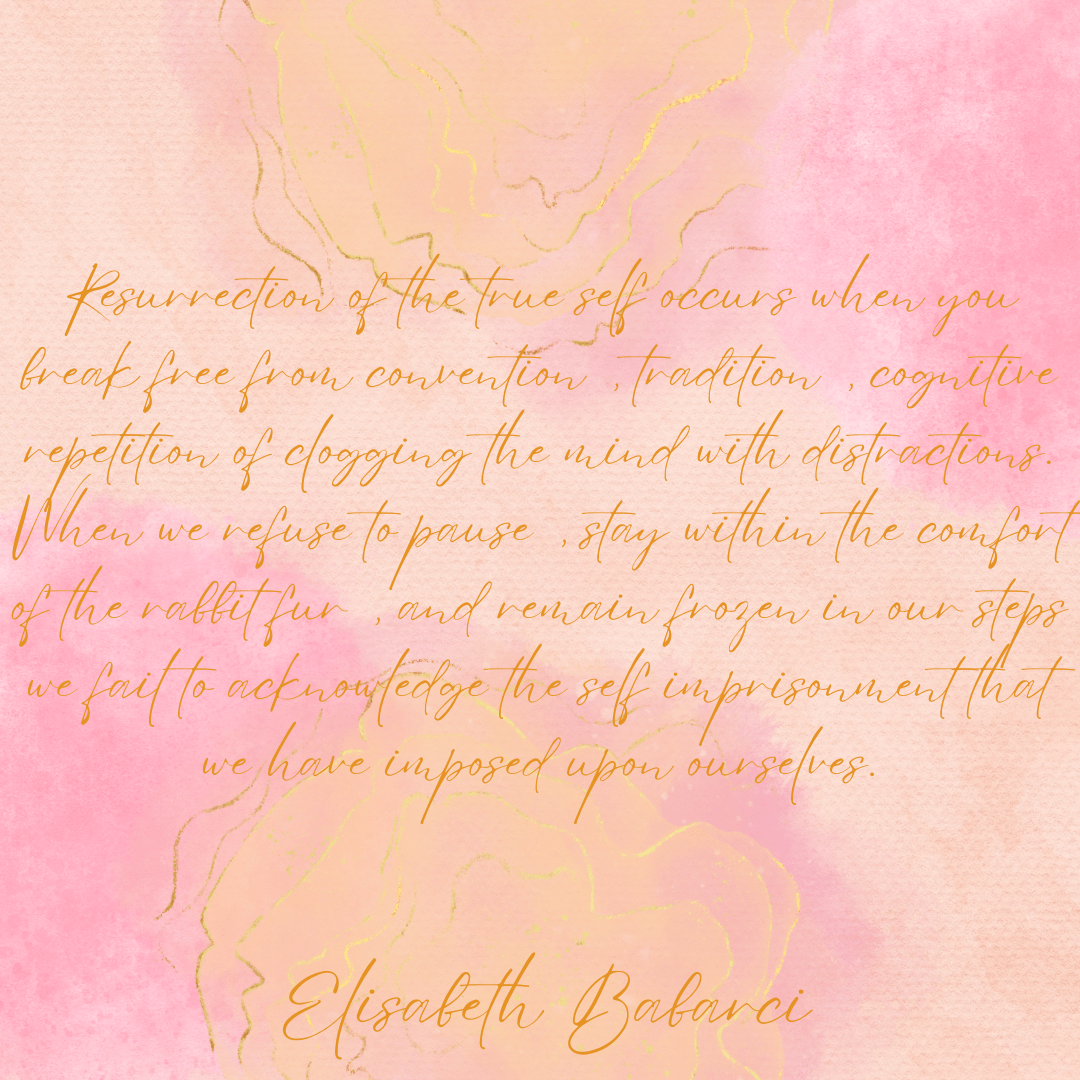 Resurrection of the true self occurs when you
break free from convention , tradition , cognitive
repetition of clogging the mind with distractions.
When we refuse to pause , stay within the comfort
of the rabbit fur , and remain frozen in our steps
we fail to acknowledge the self imprisonment that
we have imposed upon ourselves.
Elisabeth Babarci